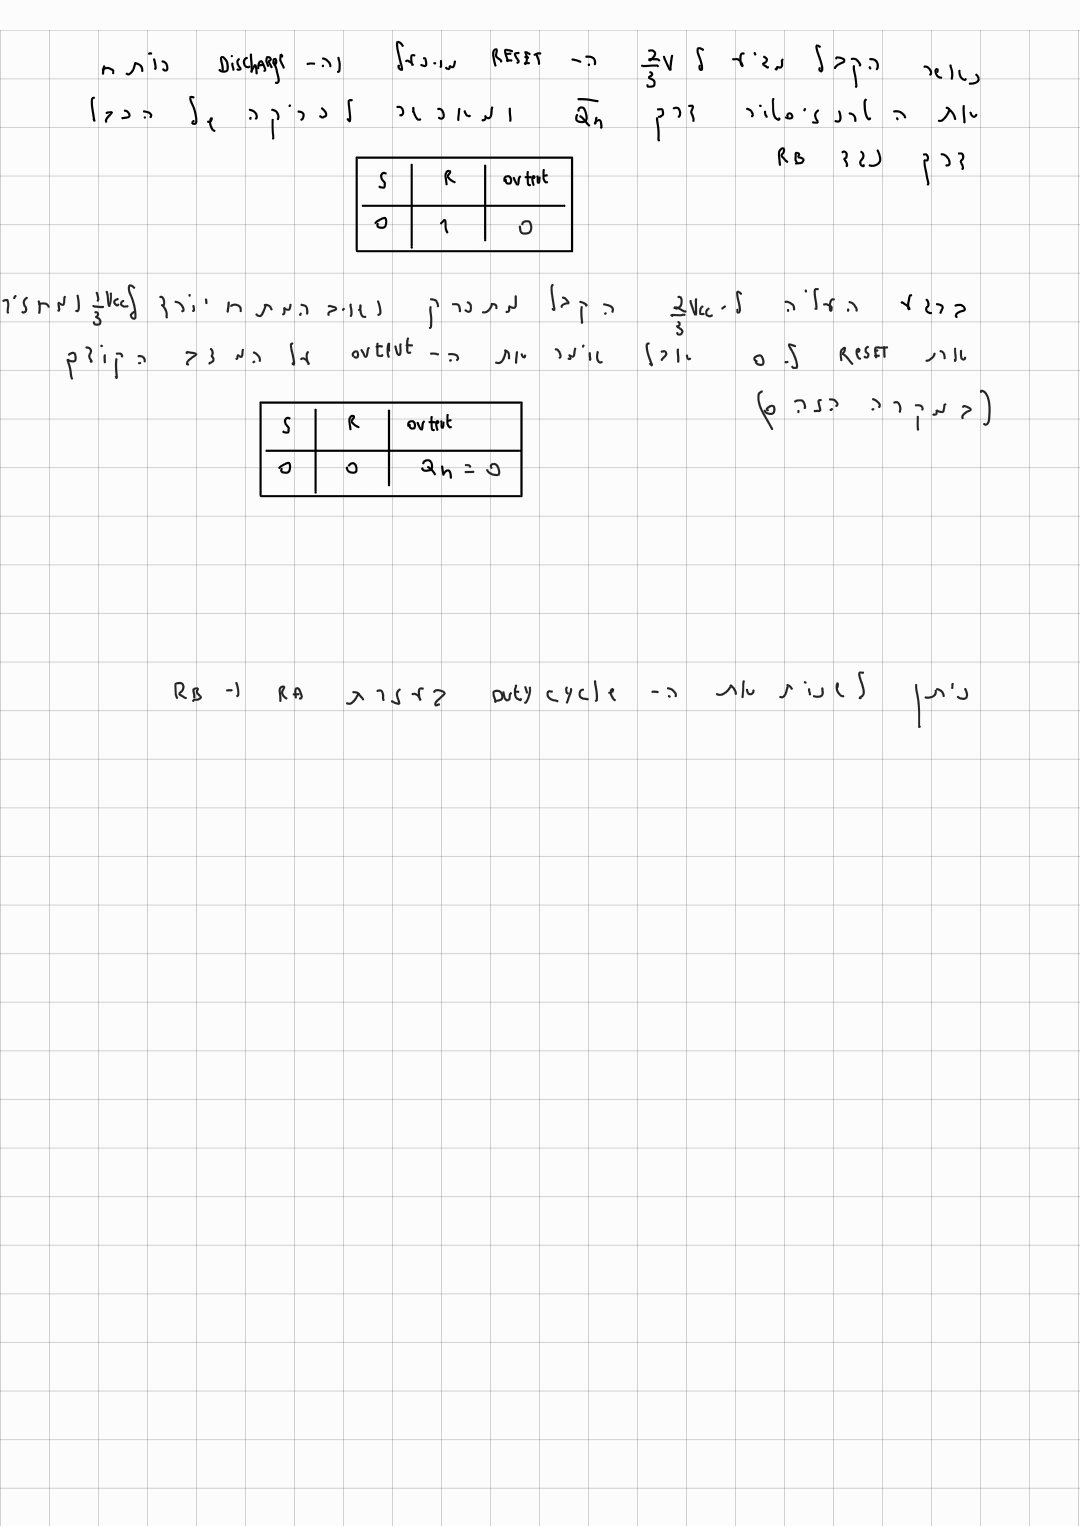 כאשר הקבל מגיע ל 2/3V ה- RESET מופעל וה- Discharge פותח
את הטרנזיסטור דרך Q̅n ומאפשר לפריקה של הקבל
דרך נגד RB
S R output
0 1 0
ברגע העליה ל- 2/3Vcc הקבל מתפרק ושוב המתח יורד ל 1/3Vcc ומחזיר
את RESET ל 0 אבל שומר את ה- output על המצב הקודם
(במקרה הזה 0)
S R output
0 0 Qn = 0
ניתן לשנות את ה- Duty cycle בעזרת RA ו- RB